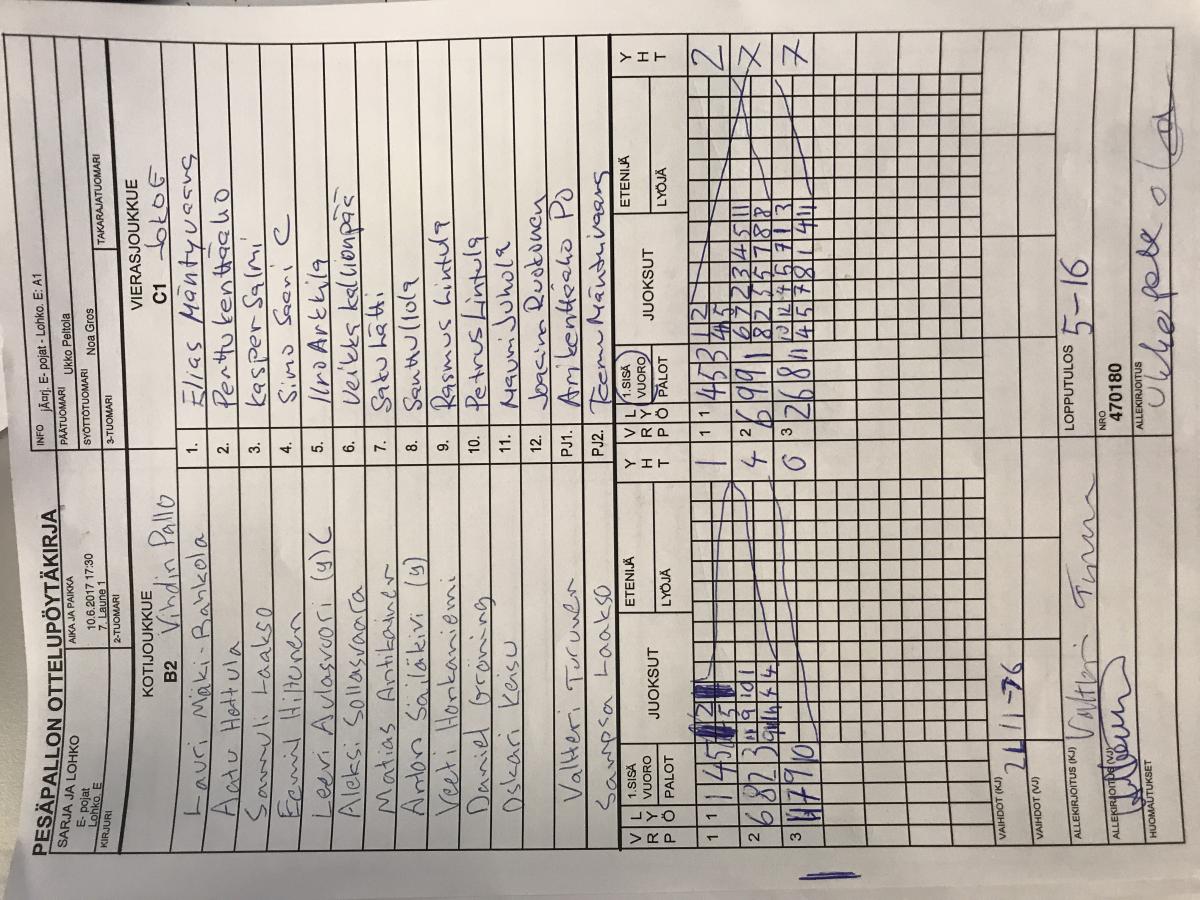 PESÄPALLON OTTELUPÖYTÄKIRJA
SARJA JA LOHKO
E- pojat
Lohko. E
AIKA JA PAIKKA
10.6.2017 17:30
7. Laune 1
INFO jÄrrj. E- pojat - Lohko. E: A1
PÄÄTUOMARI Ukko Peltola
SYÖTTÖTUOMARI Noa Gros
KIRJURI
2-TUOMARI
3-TUOMARI
TAKARAJATUOMARI
KOTIJOUKKUE
B2 Vihdin Pallo
VIERASJOUKKUE
C1 JoKoE
Lauri Mäki-Rahkola 1. Elias Mäntyvaara
Aatu Hottula 2. Penttu kenttäaho
Samuli Laakso 3. Kasper Salmi
Eemil Hiltunen 4. Simo Saari C
Leevi Aulasvuori (y) C 5. Iiro Arkkila
Aleksi Sollasvaara 6. Veikka kallionpää
Matias Antikainen 7. Satu Lätti
Anton Säiläkivi (y) 8. Santtu Ilola
Veeti Honkaniemi 9. Rasmus Lintula
Daniel Gröning 10. Petrus Lintula
Oskari Keisu 11. Mauri Juhola
12. Joacim Ruokonen
Valtteri Turunen PJ1. Ari kenttäaho PO
Sampsa Laakso PJ2. Teemu Mäntyvaara
VRP LYÖ 1.SISÄ VUORO PALOT JUOKSUT ETENIJÄ LYÖJÄ YHT
VRP LYÖ 1.SISÄ VUORO PALOT JUOKSUT ETENIJÄ LYÖJÄ YHT
1 1 1 4 5 2 5 1
1 1 4 5 3 1 2 4 5 2
2 6 8 2 3 4
2 6 9 9 1 6 7 2 3 4 5 11 8 2 3 5 7 8 8 7
3 7 9 10 0
3 2 6 8 11 10 12 4 5 7 1 3 4 5 7 8 1 4 11 7
VAIHDOT (KJ)
VAIHDOT (VJ)
ALLEKIRJOITUS (KJ)
ALLEKIRJOITUS (VJ)
HUOMAUTUKSET
LOPPUTULOS 5-16
NRO
470180
ALLEKIRJOITUS